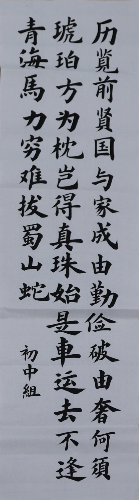 历览前贤国与家成由勤俭破由奢何须
琥珀方为枕岂得真珠始是車运去不逢
青海馬力穷难拔蜀山蛇
初中组